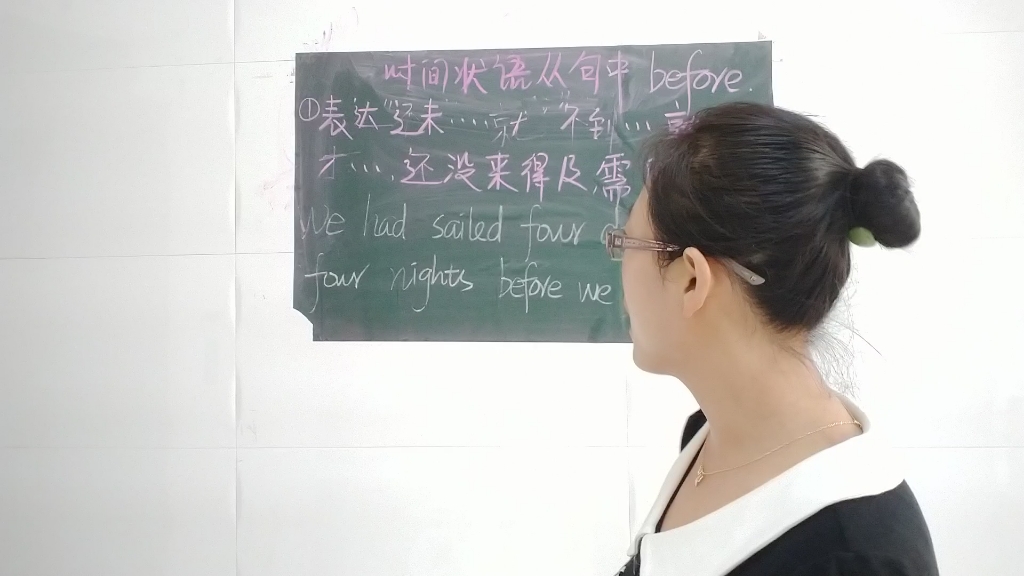 时间状语从句中 before.
①表达"还未……就" "不到…
才…. 还没来得及需
We had sailed four
four nights before we